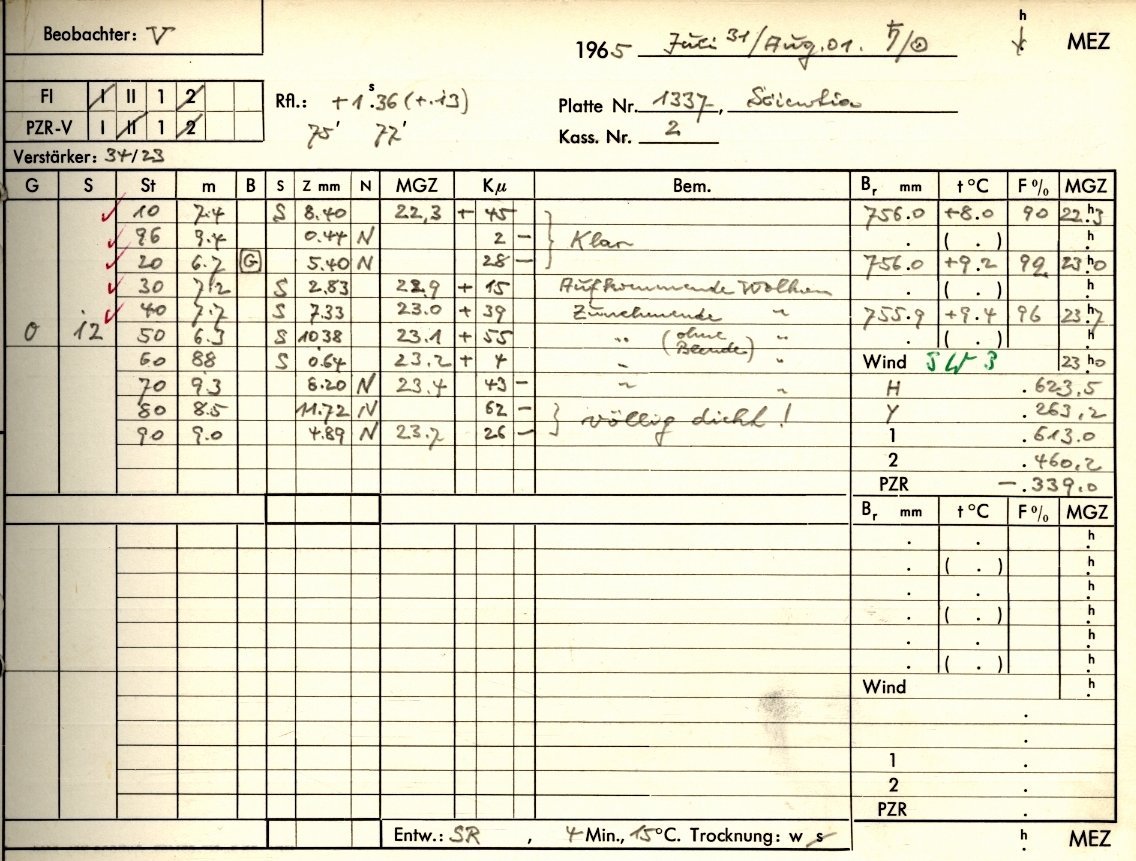 Beobachter: V
1965 Juli 31/Aug. 01. ♄/☉ h MEZ
FI I II 1 2
PZR-V I II 1 2
Rfl.: +1ˢ.36 (+.13)
75' 77'
Platte Nr. 1337,
Kass. Nr. 2
Verstärker: 34/23
G S St m B S Z mm N MGZ Kμ Bem. Br mm t °C F% MGZ
✓ 10 7.4 S 8.40 22,3 + 45 756.0 +8.0 90 22.ʰ3
✓ 96 9.4 0.44 N 2 − } Klar . ( . ) h
✓ 20 6.7 G 5.40 N 28 − 756.0 +9.2 92 23.ʰ0
✓ 30 7.2 S 2.83 22.9 + 15 Aufkommende Wolken . ( . ) h
✓ 40 7.7 S 7.33 23.0 + 39 Zunehmende " 755.9 +9.4 96 23.ʰ7
0 12 50 6.3 S 10 38 23.1 + 55 " (ohne Blende) " . ( . ) h
60 88 S 0.64 23.2 + 4 " " Wind SW 3 23.ʰ0
70 9.3 8.20 N 23.4 43 − " " H .623,5
80 8.5 11.72 N 62 − } völlig dicht! Y .263,2
90 9.0 4.89 N 23.7 26 − 1 .613.0
2 .460,2
PZR −.339.0
Br mm t °C F% MGZ
. . h
. ( . ) h
. . h
. ( . ) h
. . h
. ( . ) h
Wind h
.
.
1 .
2 .
PZR .
Entw.: SR , 4 Min., 15°C. Trocknung: w s h MEZ